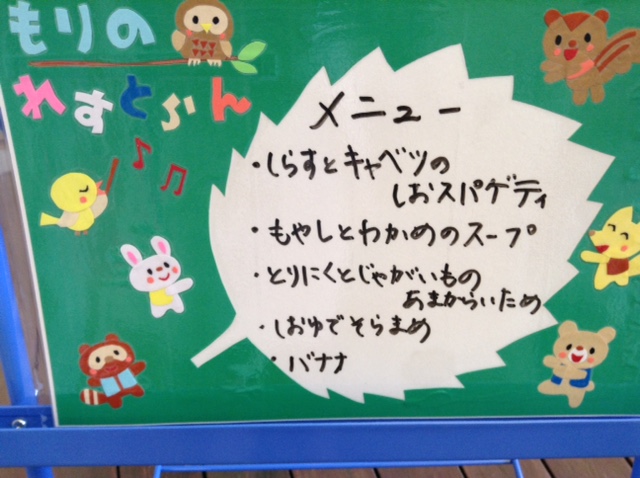 もりの
れすとらん
メニュー
・しらすとキャベツの
しおスパゲティ
・もやしとわかめのスープ
・とりにくとじゃがいもの
あまからいため
・しおゆでそらまめ
・バナナ